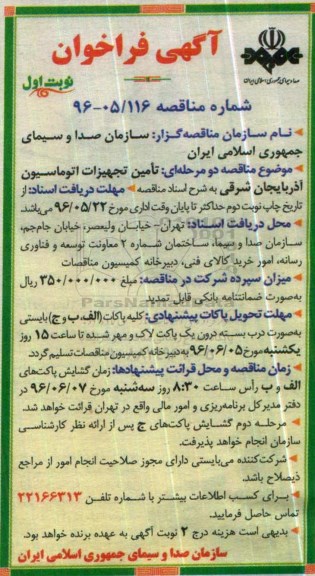 آگهی فراخوان
صدا و سیمای جمهوری اسلامی ایران
نوبت اول
شماره مناقصه ۰۵/۱۱۶-۹۶
نـام سـازمان مناقصه‌گـزار: سـازمان صـدا و سـیمای
جمهوری اسلامی ایران
موضوع مناقصه دو مرحله‌ای: تأمین تجهیزات اتوماسیون
آذربایجان شرقی به شرح اسناد مناقصه مهلت دریافت اسناد: از
تاریخ چاپ نوبت دوم حداکثر تا پایان وقت اداری مورخ ۹۶/۰۵/۲۲ می‌باشد.
محل دریافت اسـناد: تهران- خیابـان ولیعصر، خیابان جام‌جم،
سازمان صدا و سیما، ساختمان شماره ۲ معاونت توسعه و فناوری
رسانه، امور خرید کالای فنی، دبیرخانه کمیسیون مناقصات
میزان سپرده شرکت در مناقصه: مبلغ ۳۵۰/۰۰۰/۰۰۰ ریال
به‌صورت ضمانتنامه بانکی قابل تمدید
مهلت تحویل پاکات پیشنهادی: کلیه پاکات (الف، ب و ج) بایستی
به‌صورت درب بسته درون یک پاکت لاک و مهر شـده تا ساعت ۱۵ روز
یکشنبه مورخ ۹۶/۰۶/۰۵ به دبیرخانه کمیسیون مناقصات تسلیم گردد.
زمان مناقصه و محل قرائت پیشنهادها: زمان گشایش پاکت‌های
الف و ب رأس ساعت ۸:۳۰ روز سه‌شنبه مورخ ۹۶/۰۶/۰۷ در
دفتر مدیر کل برنامه‌ریزی و امور مالی واقع در تهران قرائت خواهد شد.
مرحلـه دوم گشـایش پاکت‌های ج پس از ارائه نظر کارشناسی
سازمان انجام خواهد پذیرفت.
شرکت‌کننده می‌بایستی دارای مجوز صلاحیت انجام امور از مراجع
ذیصلاح باشد.
بـرای کسـب اطلاعات بیشـتر با شـماره تلفـن ۲۲۱۶۶۳۱۳
تماس حاصل فرمایید.
بدیهی است هزینه درج ۲ نوبت آگهی به عهده برنده خواهد بود.
سازمان صدا و سیمای جمهوری اسلامی ایران